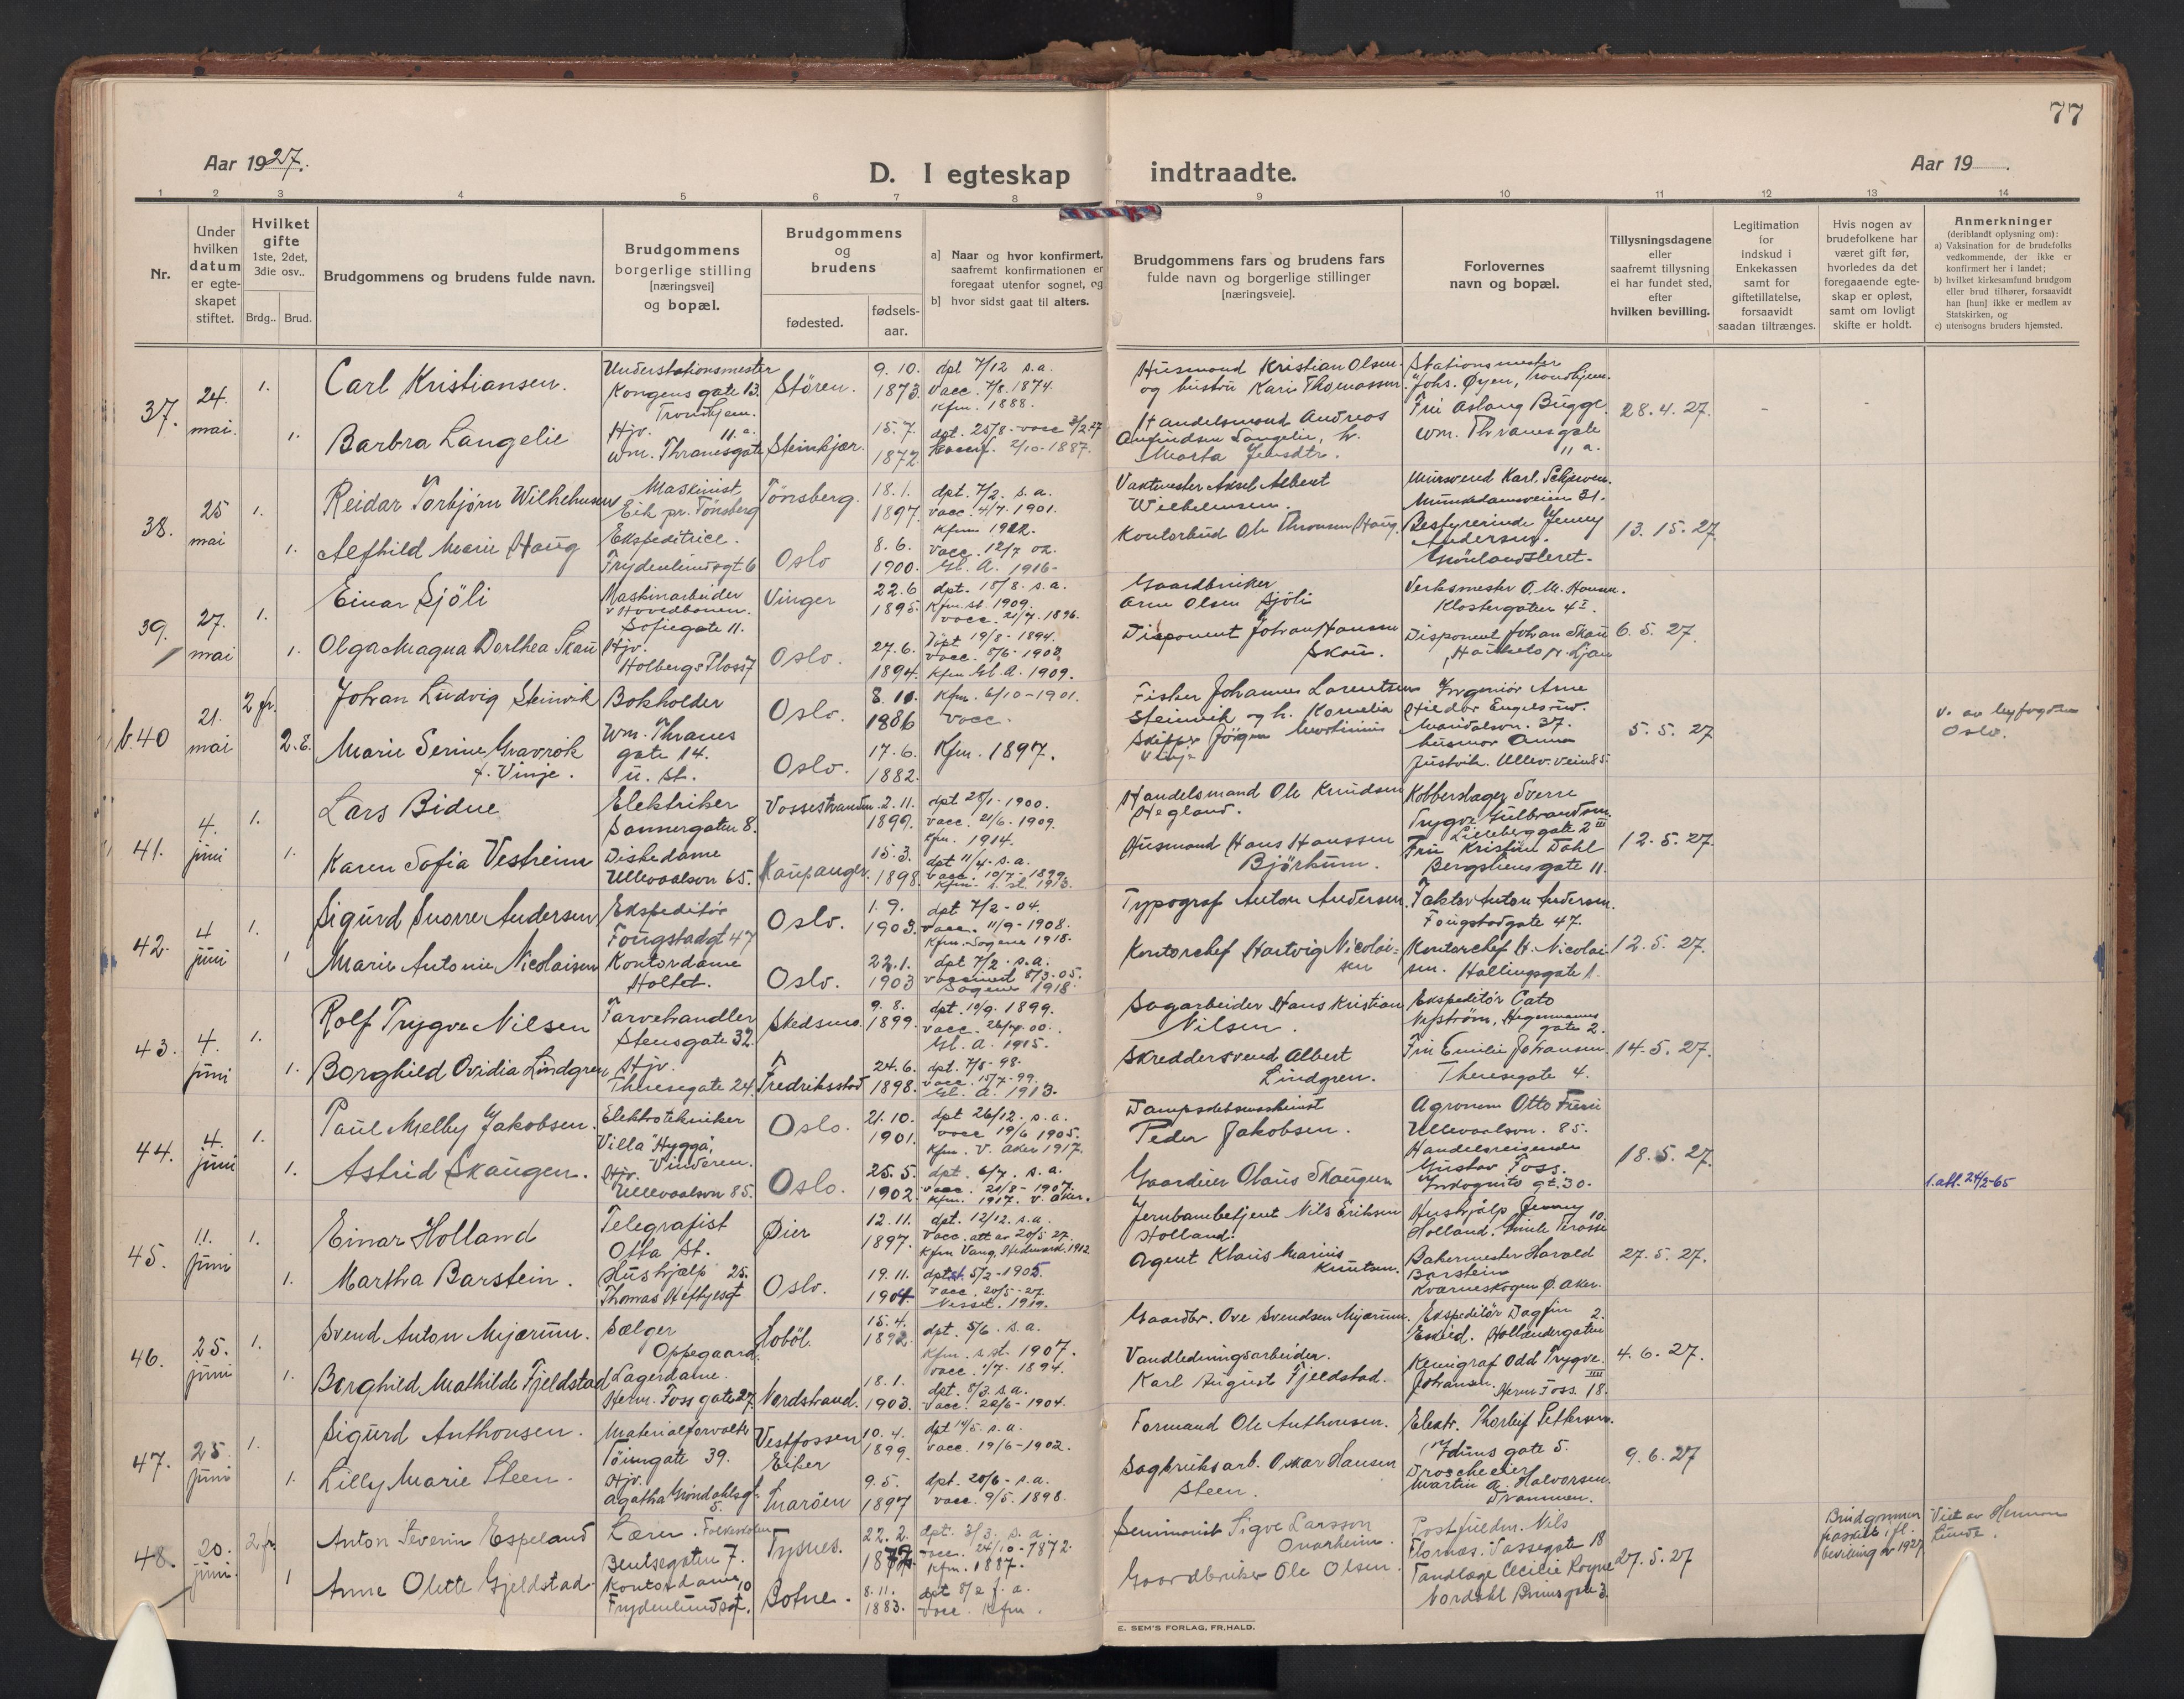 77
Aar 1927.
D. I egteskap
indtraadte.
Aar 19
1 2 3 4 5 6 7 8 9 10 11 12 13 14
Nr.
Under
hvilken
datum
er egte-
skapet
stiftet.
Hvilket
gifte
1ste, 2det,
3die osv..
Brdg.. Brud.
Brudgommens og brudens fulde navn.
Brudgommens
borgerlige stilling
[næringsvei]
og bopæl.
Brudgommens
og
brudens
fødested.
fødsels-
aar.
a) Naar og hvor konfirmert,
saafremt konfirmationen er
foregaat utenfor sognet, og
b) hvor sidst gaat til alters.
Brudgommens fars og brudens fars
fulde navn og borgerlige stillinger
[næringsveie].
Forlovernes
navn og bopæl.
Tillysningsdagene
eller
saafremt tillysning
ei har fundet sted,
efter
hvilken bevilling.
Legitimation
for
indskud i
Enkekassen
samt for
giftetillatelse,
forsaavidt
saadan tiltrænges.
Hvis nogen av
brudefolkene har
været gift før,
hvorledes da det
foregaaende egte-
skap er opløst,
samt om lovligt
skifte er holdt.
Anmerkninger
(deriblandt oplysning om):
a) Vaksination for de brudefolks
vedkommende, der ikke er
konfirmert her i landet;
b) hvilket kirkesamfund brudgom
eller brud tilhører, forsaavidt
han [hun] ikke er medlem av
Statskirken, og
c) utensogns bruders hjemsted.
37. 24. mai. 1.
Carl Kristiansen.
Understationsmester
Kongens gate 13.
Trondhjem.
Støren.
9. 10. 1873.
dpt 7/12 s.a.
Vacc. 7/8. 1874.
Kfm. 1888.
Husmand Kristian Olsen
og hustru Kari Thomassen.
Stationsmester
Johs. Øyen, Trondhjem.
28.4.27.
1.
Barbra Langelie
Hjv. 11. a.
Wm. Thranesgate
Steinkjær.
15.7. 1872.
2/10-1887.
Handelsmand Andreas
Langelie, h.
Marta Jensdtr.
Fru Aslaug Bugge.
Wm. Thranesgate
11 a.
38. 25 mai 1.
Reidar Torbjørn Wilhelmsen
Maskinist
Eik pr. Tønsberg
Tønsberg.
18.1. 1897
dpt. 7/2. s.a.
Vacc. 4/7. 1901.
Vaktmester Aksel Albert
Wilhelmsen.
Mursvend Karl
Munkedamsveien 31.
13. 15. 27.
1.
Alfhild Marie Haug
Ekspeditrice.
Frydenlundsgt 6
Oslo
8.6. 1900.
Vacc. 12/7 02.
Gl. A. 1916-
Kontorbud Ole Thronsen Haug.
Bestyrerinde Jenny
Andersen.
Grønlandsleret.
39. 27. mai 1.
Einar Sjöli
Maskinarbeider
v Hovedbanen.
Sofiegate 11.
Vinger
22.6 1895
dpt. 18/8. s.a.
Kfm. st. 1909.
vacc. 21/7. 1896.
Gaardbruker
Arne Olsen Sjöli
Verksmester O. M. Hansen.
Klostergaten 4 I.
6. 5. 27.
1.
Olga Magna Dorthea Skau
Hjv.
Holbergs Plass 7
Oslo.
27.6. 1894.
Döpt 19/8-1894.
Kfm. Gl. A. 1909.
Disponent Johan Hansen
Skau.
Disponent Johan Skau
pr. Ljan
b.40 21. mai 2 fr.
Johan Ludvig Steinvik
Bokholder
Wm. Thranes
gate 14.
u. st.
Oslo.
8.10. 1886
Kfm. 6/10-1901.
vacc.
Fisker Johannes Larentsen
Steinvik og h. Kornelia
Ingeniör Arne
5.5. 27
v. av byfogden
Oslo.
2. E.
Marie Serine Gravrök
f. Vinje.
Oslo.
17.6. 1882.
Kfm. 1897.
Skipper Jörgen Martinius
Vinje
husmor Anna
Justvik. Ullev. veien 85.
41. 4. juni 1.
Lars Bidne
Elektriker
Sannergaten 8.
Vossestranden.
2.11. 1899.
dpt 28/1-1900.
vacc. 21/6. 1909.
Kfm. 1914.
Handelsmand Ole Knudsen
Hegland.
Kobberslager Sverre
Trygve Gulbrandsen.
Lilleberggate 2 III
12.5. 27.
1.
Karen Sofia Vestreim
Diskedame
Ullevaalsvn 65.
Kaupanger.
15.3. 1898
dpt 11/4. s.a.
Husmand Hans Hanssen
Bjørkum.
Fru Kristine Dahl
Bergsliens gate 11.
42. 4 juni 1.
Sigurd Snorre Andersen
Ekspeditør
Fougstadgt 47
Oslo.
1.9. 1903.
dpt 7/2-04.
vacc. 11/9-1908.
Kfm. Sagene 1918.
Typograf Anton Andersen.
Faktor Anton Andersen.
Fougstadgate 47.
12.5. 27.
1
Marie Antonie Nicolaisen
Kontordame
Holtet.
Oslo.
22.1. 1903
dpt 7/2. s.a.
Sagene 1918.
Kontorchef Hartvig Nicolai=
sen
Kontorchef H. Nicolai
sen. Hallingsgate 1.
43. 4. juni 1.
Rolf Trygve Nilsen
Farvehandler
Stensgate 32.
Skedsmo.
9.8. 1899.
dpt. 10/9. 1899.
Gl. a. 1915.
Sagarbeider Hans Kristian
Nilsen.
Ekspeditør Cato
Nystrøm, Hegermanns
gate 2.
14-5. 27.
1.
Borghild Ovidia Lindgren
Hjv.
Theresegate 24.
Fredriksstad
24.6. 1898.
dpt. 7/8-98.
vacc. 15/7-99.
Gl. A. 1913.
Skreddersvend Albert
Lindgren.
Fru Emilie Johansen.
Theresegate 4.
44. 4. juni 1.
Paul Melby Jakobsen.
Elektrotekniker
Villa "Hygga",
Vinderen.
Oslo.
21.10. 1901.
dpt 26/12. s.a.
vacc 19/6 1905.
Kfm. V. Aker 1917.
Peder Jakobsen.
Agronom Otto
Ullevaalsvn. 85.
18.5. 27.
1.
Astrid Skaugen.
Hjv.
Ullevaalsvn 85.
Oslo.
25.5. 1902.
dpt. 6/7. s.a.
vacc. 21/8-1907.
Kfm. 1917. V. Aker.
Gaardeier Olaus Skaugen
Handelsreisende
Gustav Foss.
Inkognito gt. 30.
1. att. 24/2-65
45. 11. juni 1.
Einar Holland
Telegrafist
Otta st.
Øier
12.11. 1897.
dpt. 12/12. s.a.
Vacc. att av 20/5 27.
Kfm Vang, Hedmark. 1912
Jernbanebetjent Nils Eriksen
Holland.
Hushjælp Jenny
Holland.
27.5. 27.
1.
Martha Barstein.
Hushjælp 25.
Thomas Heftyesgt
Oslo.
19.11. 1904.
dpt 5/2-1905.
Vacc. 20/5-27.
Nesset. 1919.
Agent Klaus Marius
Knutsen.
Bakermester Harald
Barstein
Kværneskogen Ø. Aker.
46. 25. juni 1.
Svend Anton Mjærum.
Sælger
Oppegaard.
Hobøl.
15.4. 1892.
dpt. 5/6. s.a.
Kfm. s.st. 1907.
vacc. 1/7. 1894.
Gaardbr. Ove Svendsen Mjærum.
Ekspeditör Dagfin
Hollendergaten 2.
4.6. 27.
1.
Borghild Mathilde Fjeldstad
Lagerdame.
Herm. Foss gate 27.
Nordstrand.
18.1. 1903.
dpt. 8/3. s.a.
Vacc. 22/6-1904.
Vandledningsarbeider.
Karl August Fjeldstad.
Kemigraf Odd Trygve
Johansen. Herm Foss. 18.
47. 25. juni 1.
Sigurd Anthonsen.
Materialforvalter
Töiengate 39.
Vestfossen
Eiker
10.4. 1899.
dpt 14/5. s.a.
Vacc. 19/6-1902.
Formand Ole Anthonsen.
Elektr. Thorleif Pettersen.
Iduns gate 5.
9.6.27
1.
Lilly Marie Steen.
Hjv.
Agatha Gröndahlsgt.
5.
Snaröen
9.5. 1897
dpt. 20/6-s.a.
vacc. 9/5. 1898.
Sagbruksarb. Oskar Hansen
Steen.
Droscheeier
Martin A. Halvorsen.
Drammen.
48. 20. juni. 2 fr
Anton Severin Espeland
Lærer. Folkeskolen
Bentsegaten 7.
Tysnes.
22.2. 1872
dpt. 3/3. s.a.
vacc. 24/10-1872.
Kfm. 1887.
Seminarist Sigve Larsson
Onarheim.
Postfuldm. Nils
Flornes. Vossegate 18
27.5.27
Brudgommen
fraskilt ifl.
bevilling av 1927
Viet av Herman
Lunde.
1
Anne Olette Gjeldstad.
Kontordame
Frydenlundsgt. 10
Botne.
8.11. 1883.
dpt 8/2 f.a.
vacc. Kfm.
Gaardbruker Ole Olsen.
Tandlæge Cecilie Rogne
Nordahl Brunsgate 3.
E. SEM'S FORLAG, FR.HALD.